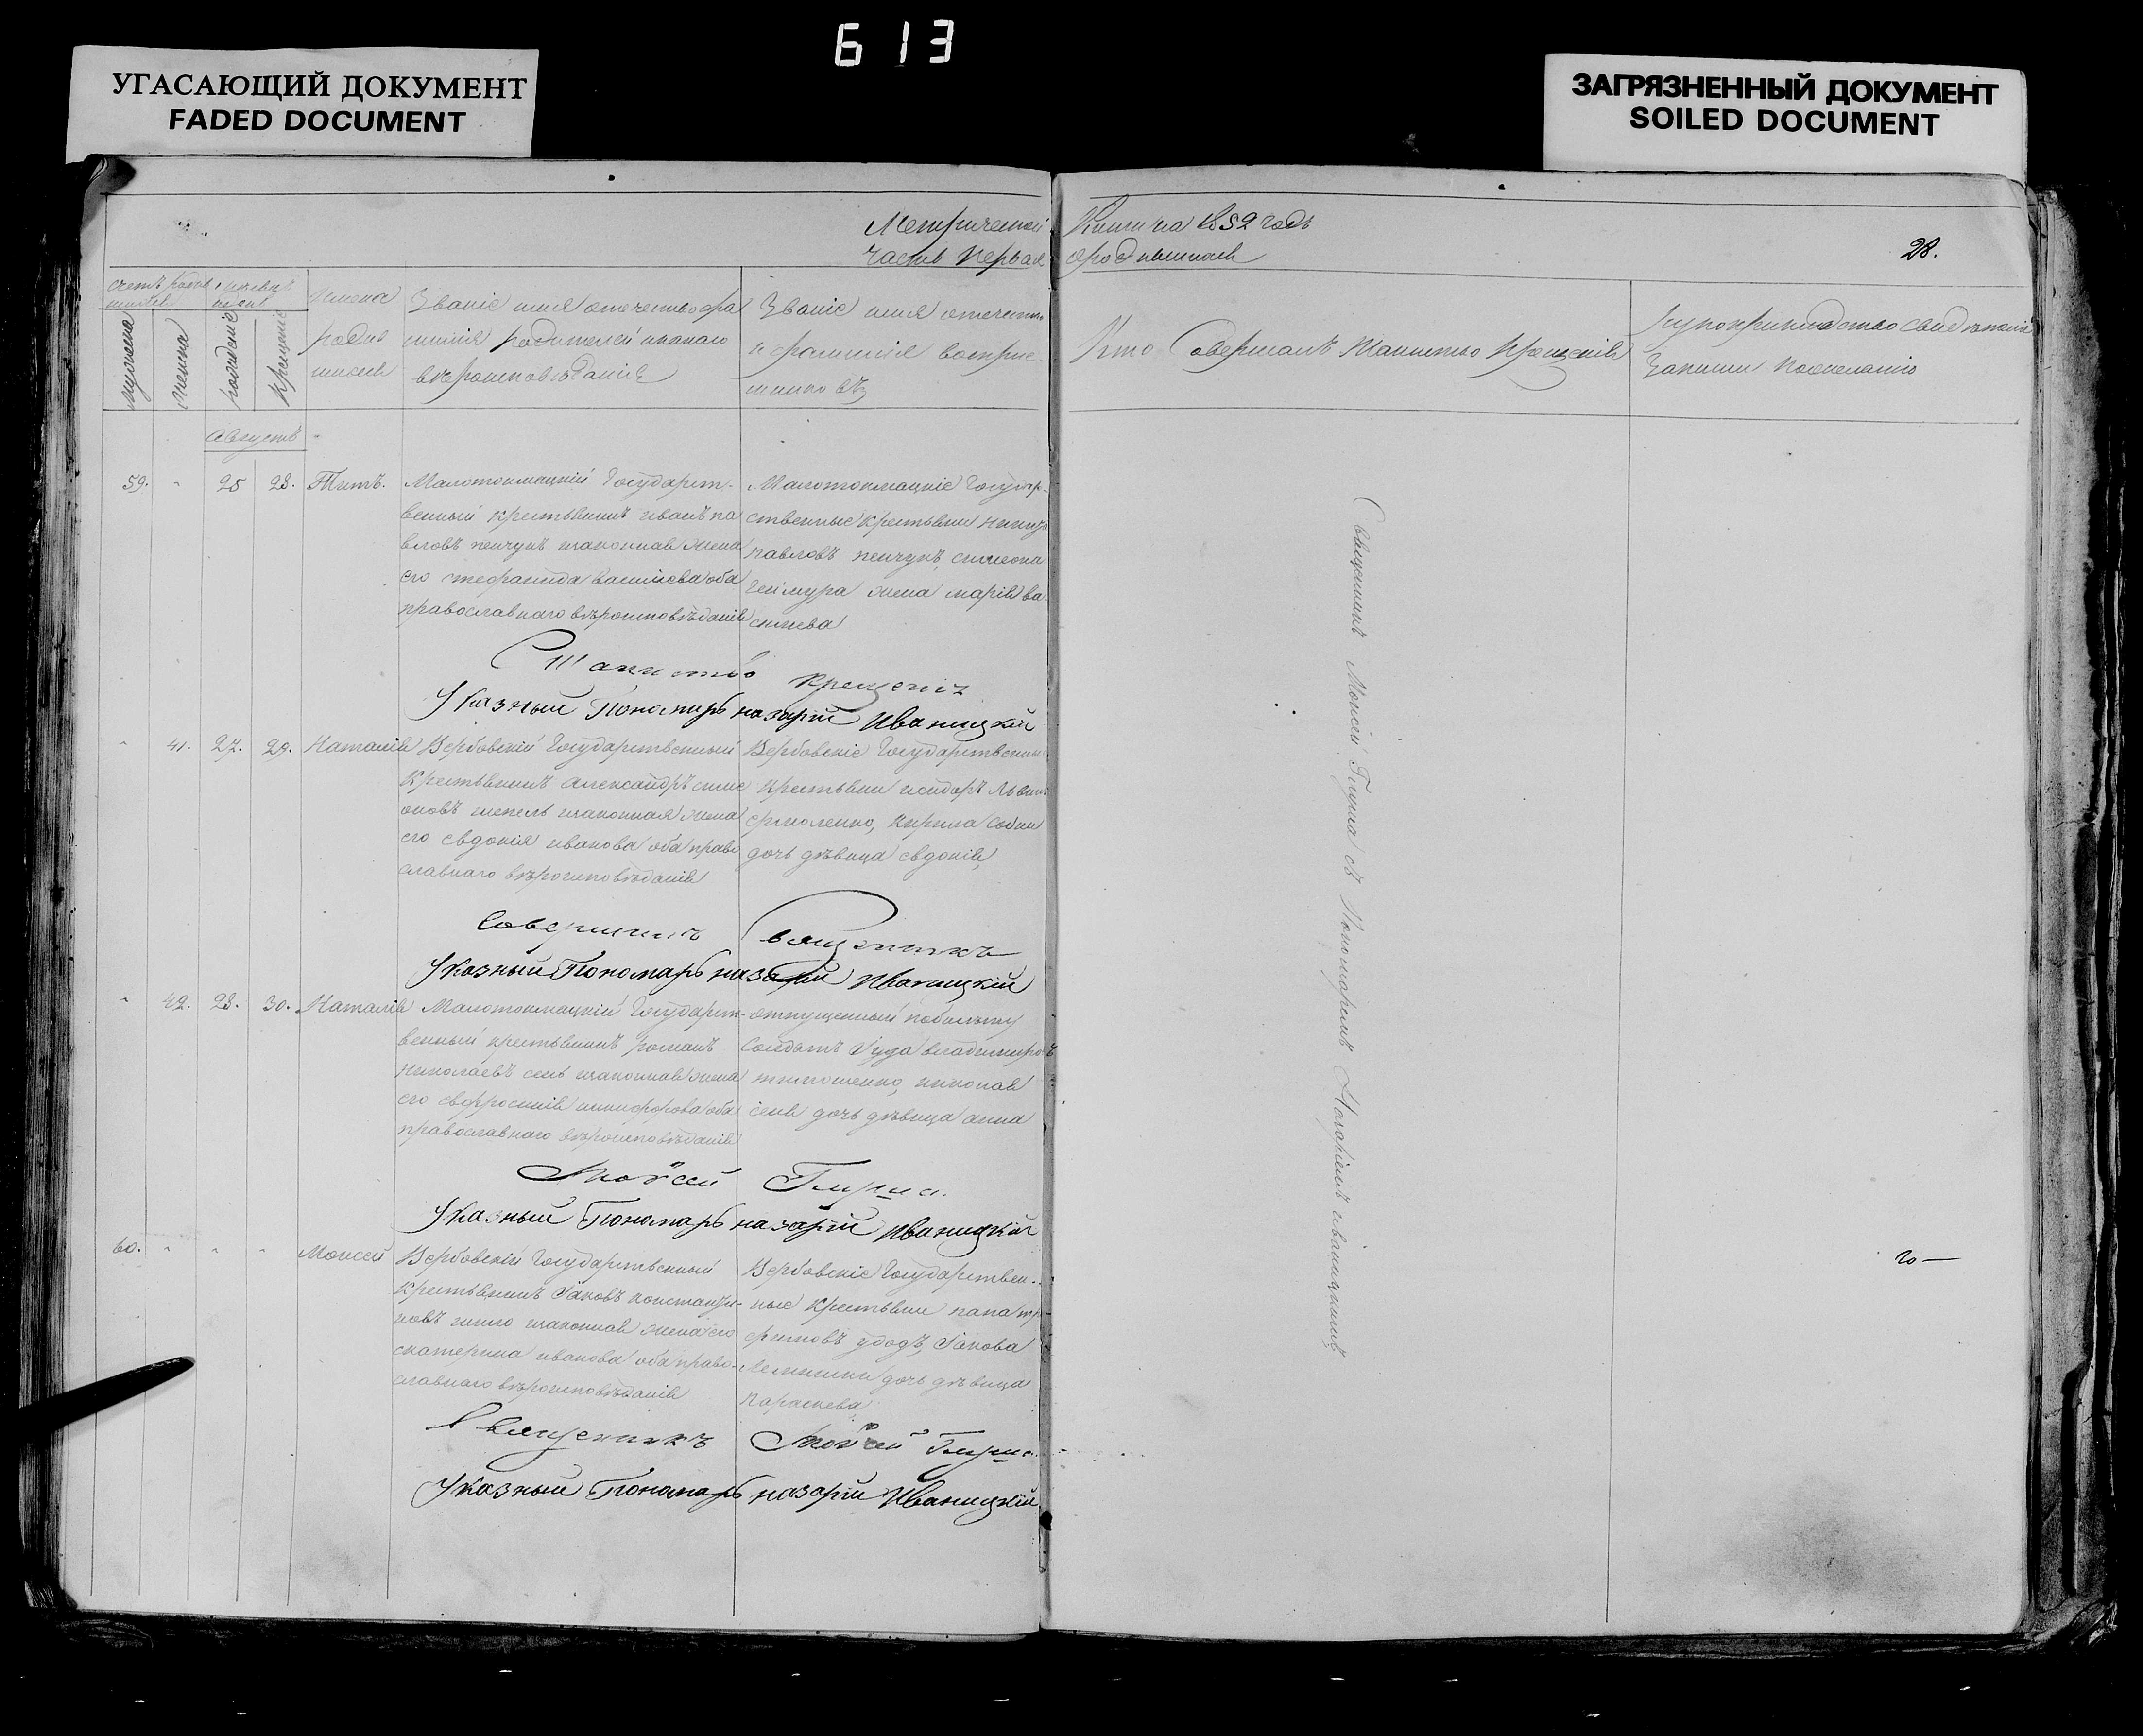 613
УГАСАЮЩИЙ ДОКУМЕНТ
FADED DOCUMENT
ЗАГРЯЗНЕННЫЙ ДОКУМЕНТ
SOILED DOCUMENT
Метрической Книги на 1852 годъ
Часть Первая о родившихся
28.
мужеска
женска
рождение
крещение
Имена
родив
шихся
Званіе имя отечество фа
милія родителей и какаго
вѣроисповѣданія
Званіе имя отечество
и фамилія воспріе
мниковъ
Кто Совершалъ Таинство Крещенія
Рукоприкладство свидѣтелей
записи по желанію
Августъ
59. 25 28. Титъ.
Малотокмацкій Государст-
венный крестьянинъ иванъ па
вловъ пенчукъ законная жена
его стефанида васильева оба
православнаго вѣроисповѣданія
Малотокмацкіе Государ-
ственные крестьяне
павловъ пенчукъ, симеона
жена марія ва
сильева
Таинство крещенія
Указный Пономарь назарій Иваницкій
41. 27. 29. Наталія
Вербовскій Государственный
крестьянинъ александръ симе
оновъ шепель законная жена
его евдокія иванова оба право
славнаго вѣроисповѣданія
Вербовскіе Государственные
крестьяне исидоръ
ермоленко, кирила
дочь дѣвица евдокія,
Совершилъ Священникъ
Указный Пономарь назарій Иваницкій
42. 28. 30. Наталія
Малотокмацкій Государст-
венный крестьянинъ романъ
николаевъ сень законная жена
его евфросинія никифорова оба
православнаго вѣроисповѣданія
отпущенный по билету
солдатъ владимировъ
тимошенко, николая
сеня дочь дѣвица анна
Моѵсей Гирша.
Указный Пономарь назарій Иваницкій
60. Моисей
Вербовскій Государственный
крестьянинъ Іаковъ константи-
новъ законная жена его
екатерина иванова оба право-
славнаго вѣроисповѣданія
Вербовскіе Государствен-
ные крестьяне
удодъ, Іакова
дочь дѣвица
параскева
Священникъ Моѵсей Гирша.
Указный Пономарь назарій Иваницкій
Священникъ Моисей Гирша съ Пономаремъ Назаріемъ иваницкимъ